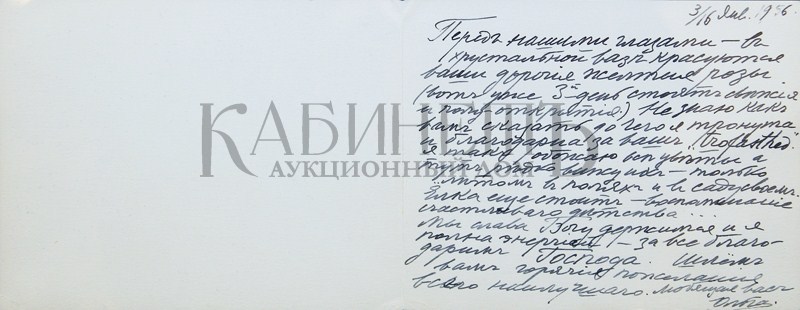 3/16 Янв. 1956.
Передъ нашими глазами – въ
хрустальной вазѣ красуются
ваши дорогія желтыя розы
(вотъ уже 3й день стоятъ свѣжія
и полу-открытія) Не знаю какъ
вамъ сказать до чего я тронута
и благодарна за вашъ
я такъ обожаю всѣ цвѣты а
только
лѣтомъ въ поляхъ и въ саду своемъ.
Елка еще стоитъ – воспоминаніе
счастливаго дѣтства...
Мы слава Богу держимся и я
полна энергіей – за все благо-
даримъ Господа. Шлёмъ
вамъ горячія пожеланія
всего наилучшаго. Любящая васъ
Ольга.
КАБИНЕТЪ
АУКЦИОННЫЙ ДОМ